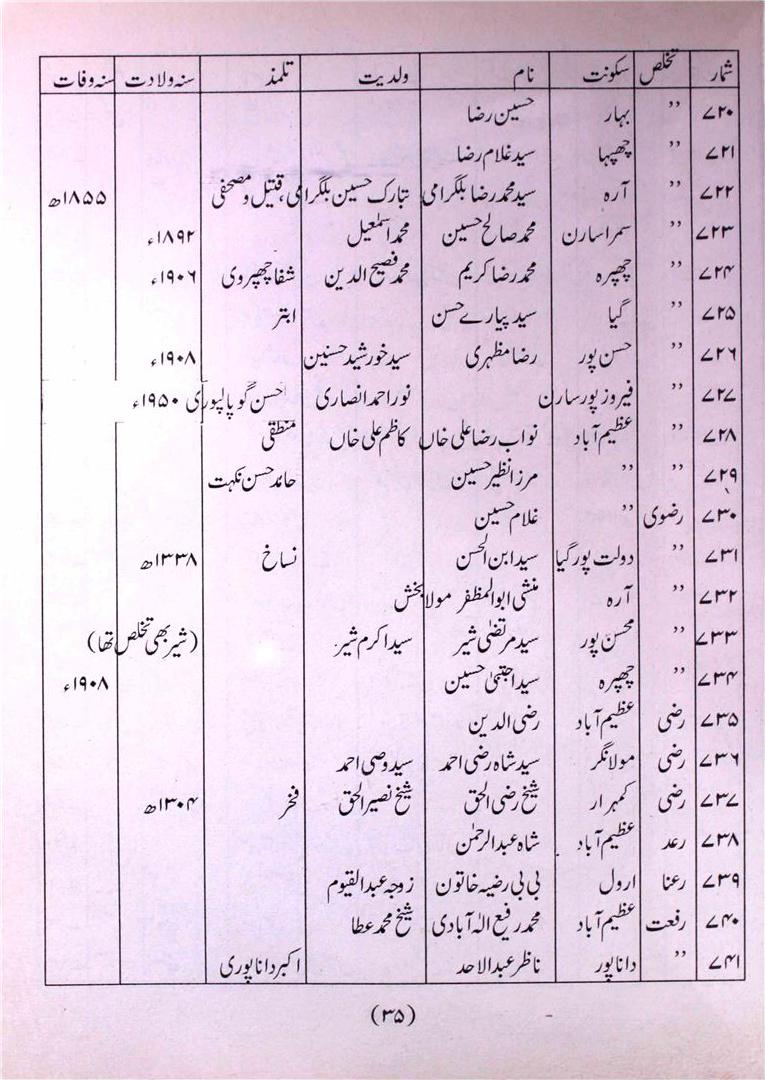 شمار تخلص سکونت نام ولدیت تلمذ سنہ ولادت سنہ وفات
۷۲۰ ,, بہار حسین رضا
۷۲۱ ,, چھپہا سید غلام رضا
۷۲۲ ,, آرہ سید محمد رضا بلگرامی تبارک حسین بلگرامی، قتیل و مصحفی ۱۸۵۵ھ
۷۲۳ ,, سمرا سارن محمد صالح حسین محمد اسمٰعیل ۱۸۹۲ء
۷۲۴ ,, چھپرہ محمد رضا کریم محمد فصیح الدین شفا چھپروی ۱۹۰۶ء
۷۲۵ ,, گیا سید پیارے حسن ابتر
۷۲۶ ,, حسن پور رضا مظہری سید خورشید حسنین ۱۹۰۸ء
۷۲۷ ,, فیروز پور سارن نور احمد انصاری احسن گوپالپوری ۱۹۵۰ء
۷۲۸ ,, عظیم آباد نواب رضا علی خاں کاظم علی خاں منطقی
۷۲۹ ,, ,, مرزا نظیر حسین حامد حسن نکہت
۷۳۰ رضوی ,, غلام حسین
۷۳۱ ,, دولت پور گیا سید ابن الحسن نساخ ۱۳۳۸ھ
۷۳۲ ,, آرہ منشی ابوالمظفر مولا بخش
۷۳۳ ,, محسن پور سید مرتضیٰ شیر سید اکرم شیر (شیر بھی تخلص تھا)
۷۳۴ ,, چھپرہ سید اجتبیٰ حسین ۱۹۰۸ء
۷۳۵ رضی عظیم آباد رضی الدین
۷۳۶ رضی مولانگر سید شاہ رضی احمد سید وصی احمد
۷۳۷ رضی کمہرار شیخ رضی الحق شیخ نصیر الحق فخر ۱۳۰۴ھ
۷۳۸ رعد عظیم آباد شاہ عبدالرحمٰن
۷۳۹ رعنا ارول بی بی رضیہ خاتون زوجہ عبدالقیوم
۷۴۰ رفعت عظیم آباد محمد رفیع الہٰ آبادی شیخ محمد عطا
۷۴۱ ,, داناپور ناظر عبدالاحد اکبر داناپوری
(۳۵)